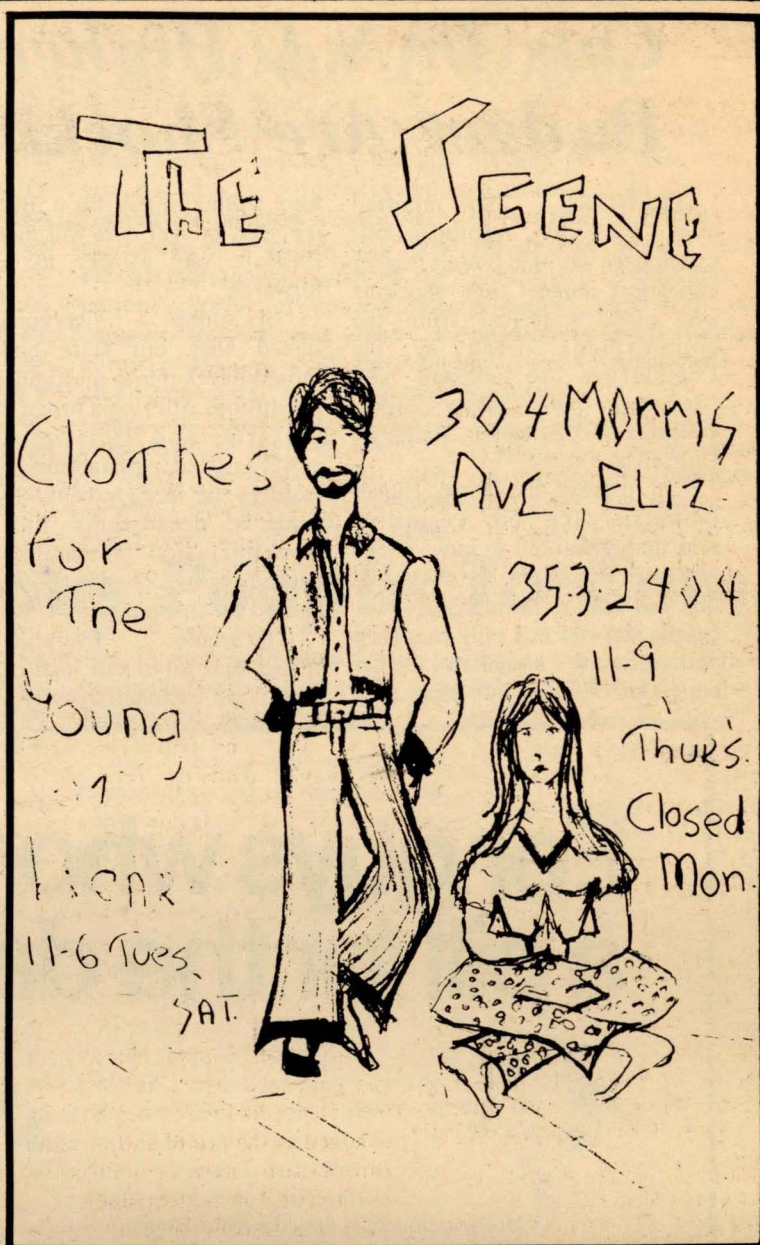 The Scene
Clothes
for
The
Young
11-6 Tues.
SAT.
304 Morris
Ave, Eliz.
353.2404
11-9
Thur's.
Closed
Mon.